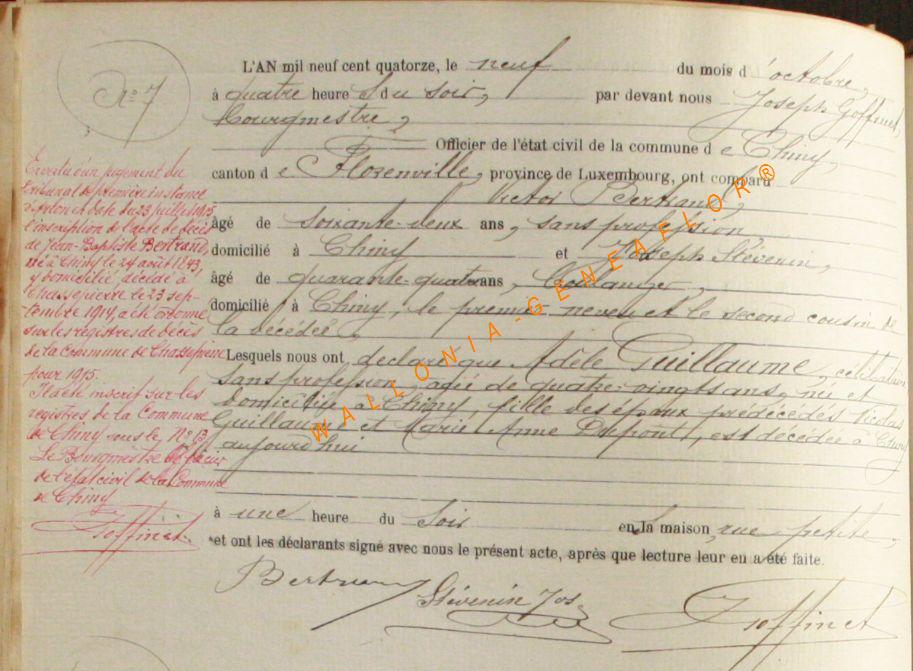 N° 7
L'AN mil neuf cent quatorze, le neuf du mois d'octobre,
à quatre heures du soir, par devant nous Joseph Goffinet,
Bourgmestre,
Officier de l'état civil de la commune de Chiny,
canton de Florenville, province de Luxembourg, ont comparu
Victor Bertrand,
âgé de soixante-deux ans, sans profession,
domicilié à Chiny et Joseph Stévenin,
âgé de quarante-quatre ans, Boulanger,
domicilié à Chiny, le premier neveu et le second cousin de
la décédée,
Lesquels nous ont déclaré que Adèle Guillaume, célibataire
sans profession, agée de quatre-vingts ans, née et
domiciliée à Chiny, fille des époux prédécédés Nicolas
Guillaume et Marie Anne Dupont, est décédée à Chiny
aujourd'hui
à une heure du soir en la maison, rue petite,
et ont les déclarants signé avec nous le présent acte, après que lecture leur en a été faite.
Bertrand
Stévenin Jos.
J Goffinet
En vertu d'un jugement du
tribunal de première instance
d'Arlon en date du 23 juillet 1915
l'inscription de l'acte de décès
de Jean-Baptiste Bertrand,
né à Chiny le 24 août 1843,
y domicilié, décédé à
Chassepierre le 23 sep-
tembre 1914, a été ordonnée
sur les registres de décès
de la commune de Chassepierre
pour 1915.
Il a été inscrit sur les
registres de la Commune
de Chiny sous le N° 13
Le Bourgmestre
de l'état civil de la Commune
de Chiny
J Goffinet
WALLONIA-GENEAFLOR®